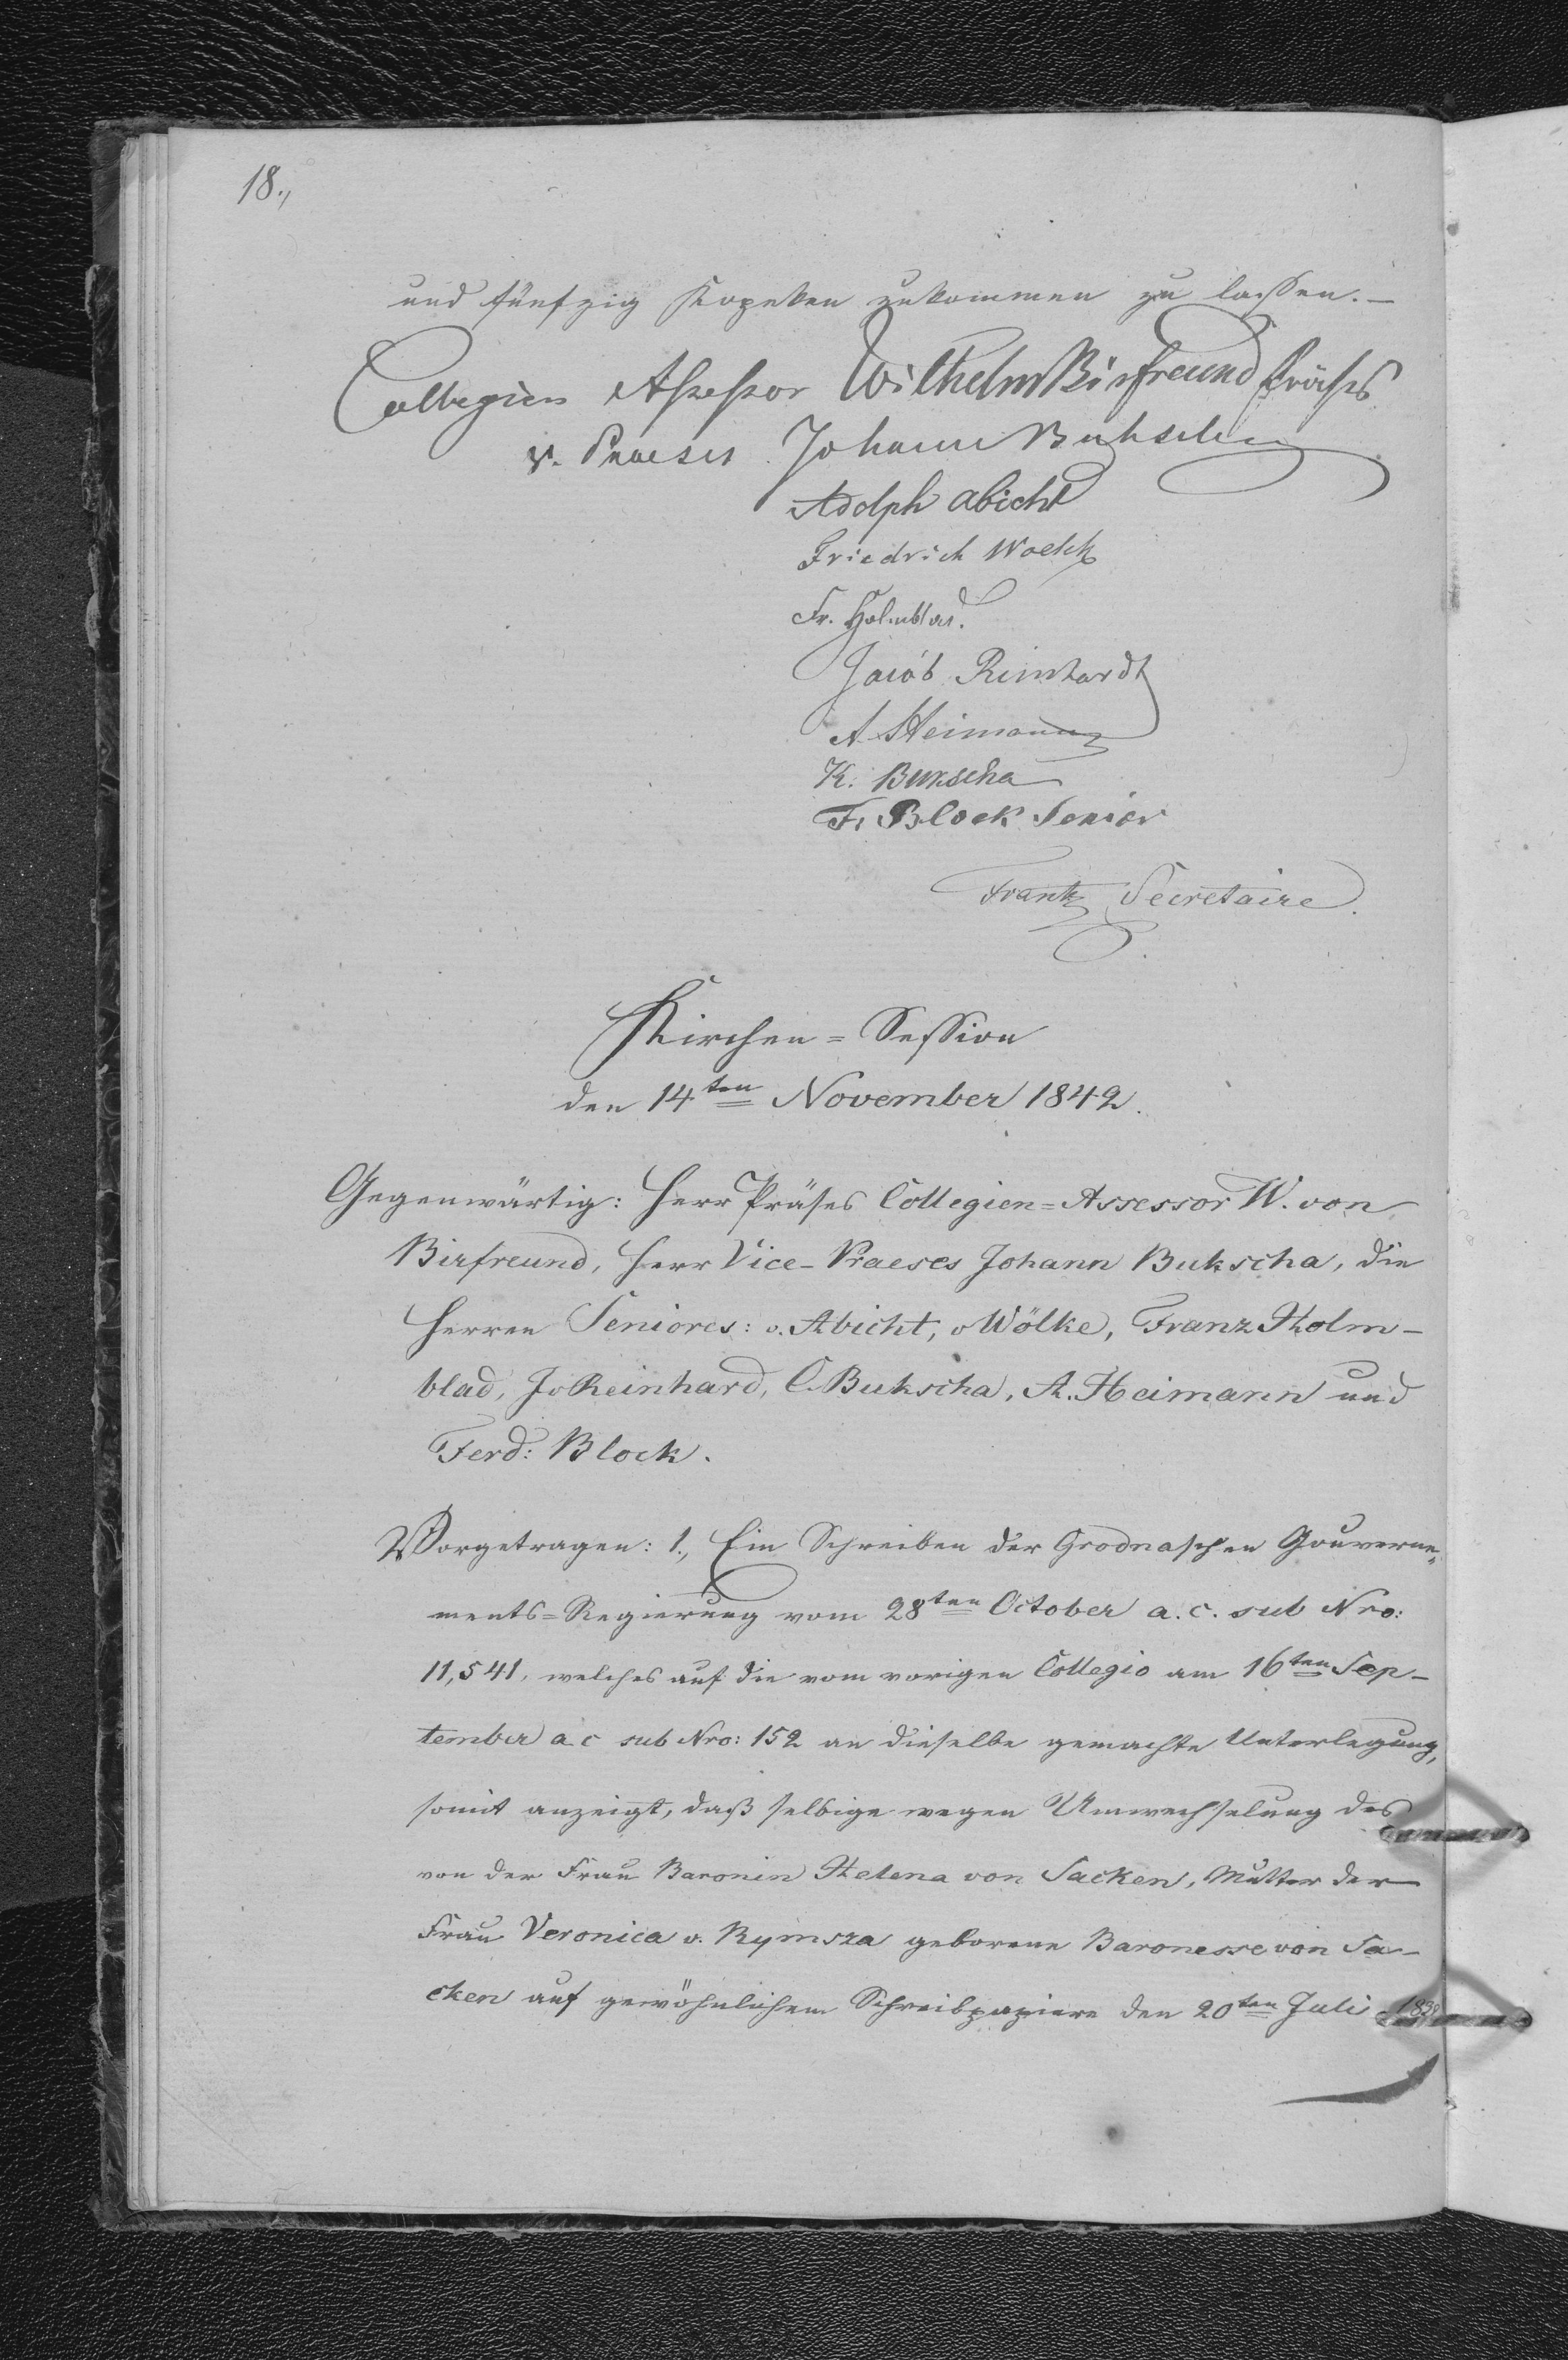 18.,
und fünfzig Kopeken zukommen zu lassen.—
Collegien Assessor Wilhelm Birfreund Präses
v. Praeses Johann Bukscha
Adolph Abicht
Friedrich Woelck
Fr. Holmblad.
Jacób Reinhardt
A. Heimann
K. Bukscha
F. Block Senior
Frantz Secretaire.
Kirchen=Session
den 14ten November 1842.
Gegenwärtig: Herr Präses Collegien=Assessor W. von
Birfreund, Herr Vice-Praeses Johann Bukscha, die
Herren Seniores: v. Abicht, v Wölke, Franz Holm-
blad, Jo Reinhard, C. Bukscha, A. Heimann und
Ferd: Block.
Vorgetragen: 1., Ein Schreiben der Grodnaschen Gouverne-
ments=Regierung vom 28ten October a. c. sub Nro:
11,541, welches auf die vom vorigen Collegio am 16ten Sep-
tember a. c sub Nro: 152 an dieselbe gemachte Unterlegung,
somit anzeigt, daß selbige wegen Umwechselung des
von der Frau Baronin Helena von Sacken, Mutter der
Frau Veronica v. Rymsza geborene Baronesse von Sa-
cken auf gewöhnlichem Schreibpapiere den 20ten Juli